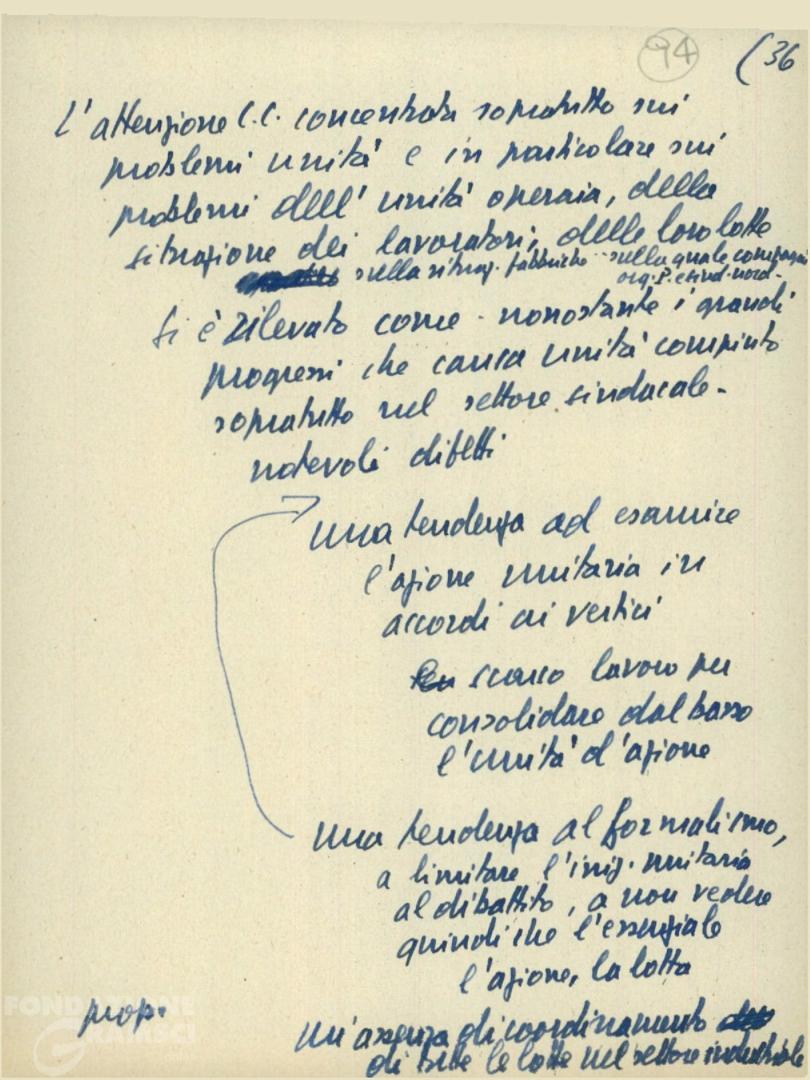 94 (36
L'attenzione C.C. concentrata sopratutto sui
problemi unità e in particolare sui
problemi dell'unità operaia, della
situazione dei lavoratori, delle loro lotte
sulla situaz. fabbriche - sulla quale compagni
org. P. e sind. nord -
Si è rilevato come - nonostante i grandi
progressi che causa unità compiuto
sopratutto nel settore sindacale -
notevoli difetti
una tendenza ad esaurire
l'azione unitaria in
accordi ai vertici
scarso lavoro per
consolidare dal basso
l'unità d'azione
una tendenza al formalismo,
a limitare l'iniz. unitaria
al dibattito, a non vedere
quindi che l'essenziale
l'azione, la lotta
prop.
un'assenza di coordinamento
di tutte le lotte nel settore industriale
FONDAZIONE
GRAMSCI